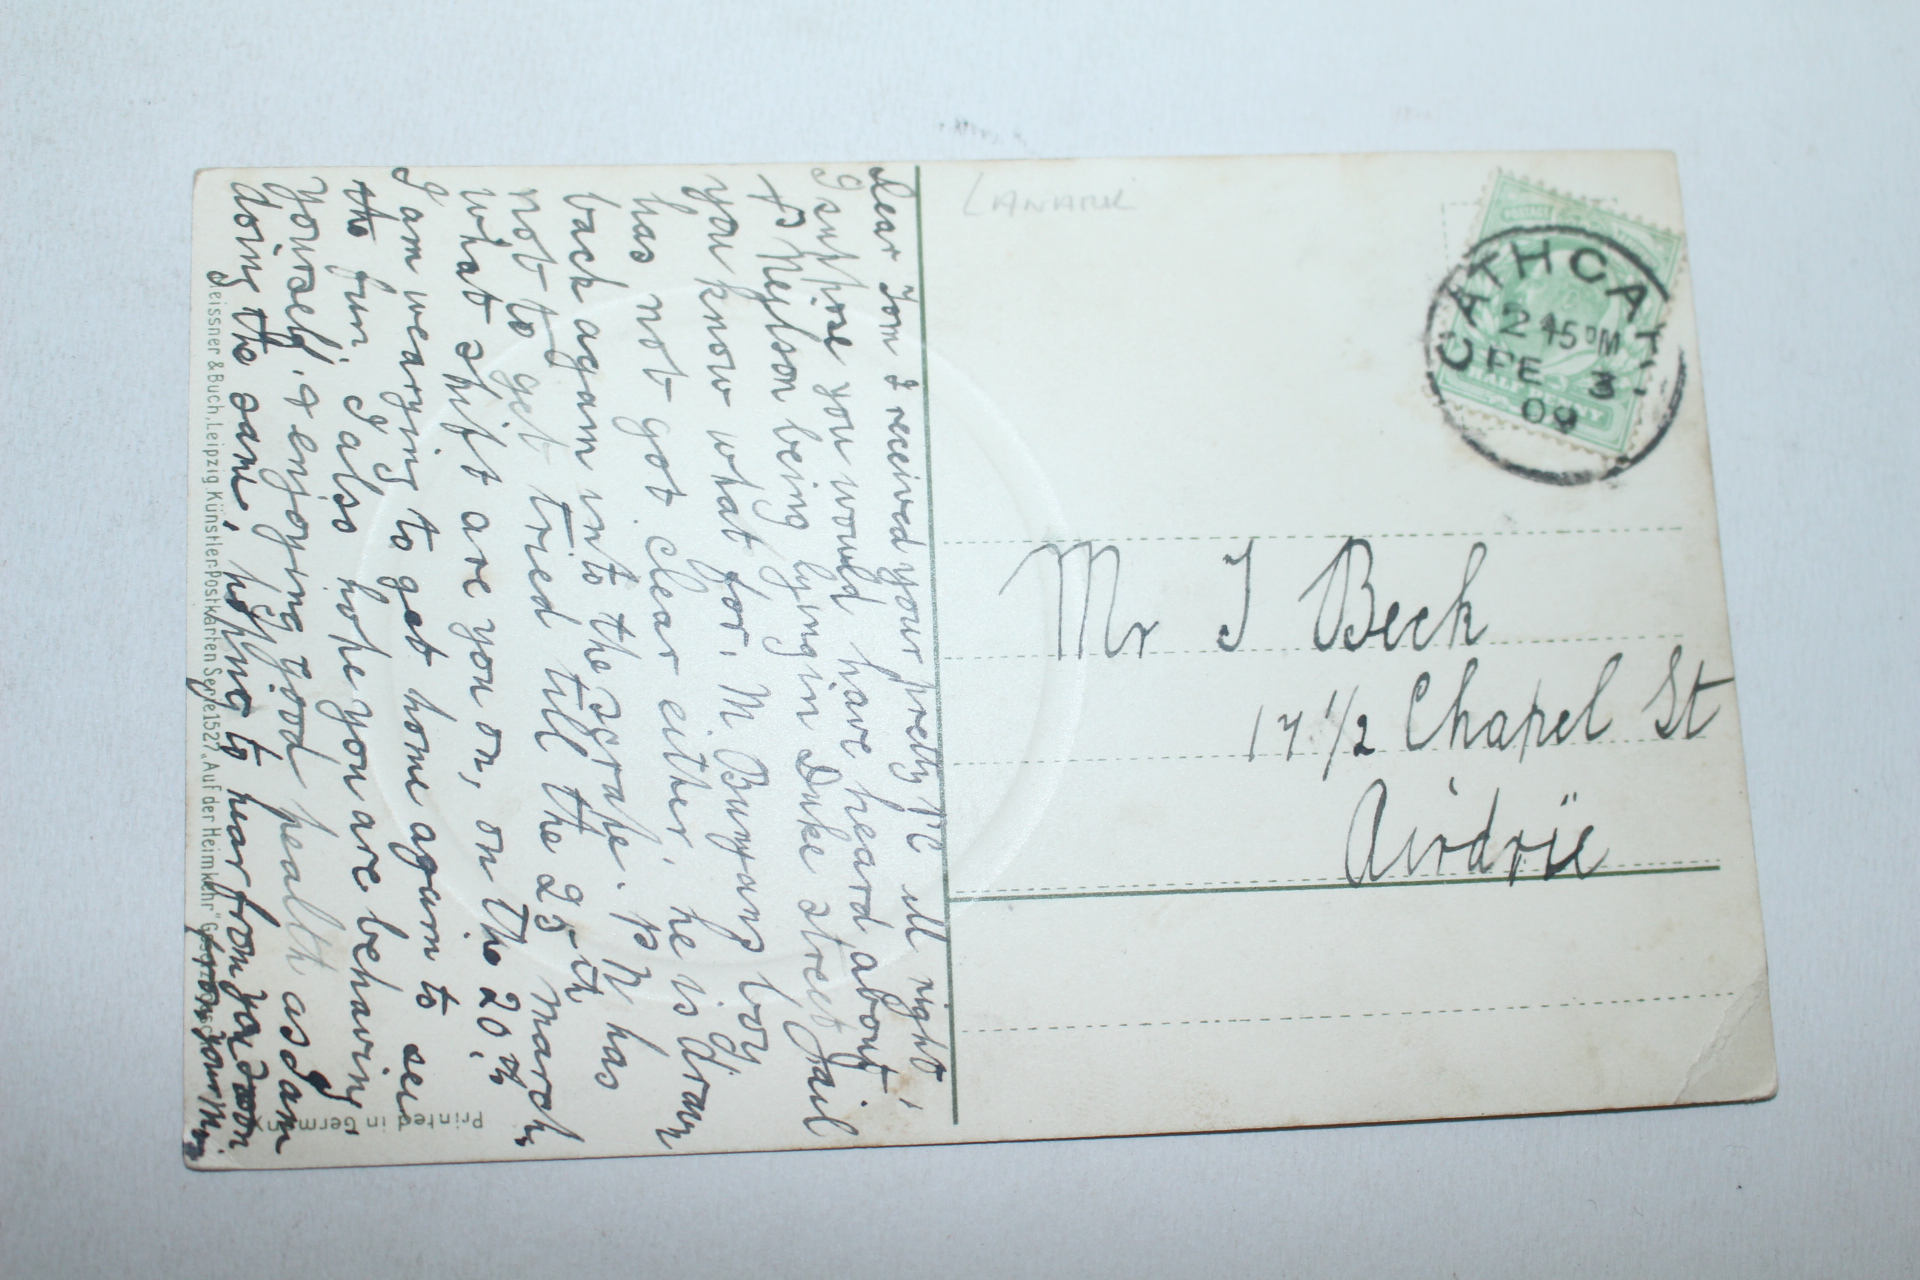 LANARK
CATHCART
2 45 PM
FE 3
09
POSTAGE
HALFPENNY
Mr T Beck
17 1/2 Chapel St
Airdrie
Dear Tom I received your pretty PC all right,
I suppose you would have heard about
P Neilson being lying in Duke street Jail
you know what for. M Bunyans boy
has not got clear either, he is drawn
back again into the scrape. P N has
not to get tried till the 25th march,
what shift are you on, on the 20th.
I am wearying to get home again to see
the fun, I also hope you are behaving
yourself, & enjoying good health as I am
doing the same, hoping to hear from you soon
from your
Meissner & Buch, Leipzig. Künstler-Postkarten Serie 1527 „Auf der Heimkehr"
Printed in Germany